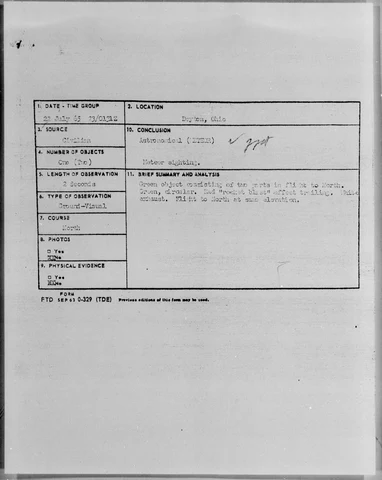 1. DATE - TIME GROUP
22 July 63 23/0131Z
2. LOCATION
Dayton, Ohio
3. SOURCE
Civilian
10. CONCLUSION
Astronomical (METEOR)
Meteor sighting.
4. NUMBER OF OBJECTS
One (Two)
5. LENGTH OF OBSERVATION
2 Seconds
11. BRIEF SUMMARY AND ANALYSIS
Green object consisting of two parts in flight to North.
Green, circular. Had "rocket blast" effect trailing. White
exhaust. Flight to North at same elevation.
6. TYPE OF OBSERVATION
Ground-Visual
7. COURSE
North
8. PHOTOS
□ Yes
No
9. PHYSICAL EVIDENCE
□ Yes
No
FORM
FTD SEP 63 0-329 (TDE) Previous editions of this form may be used.